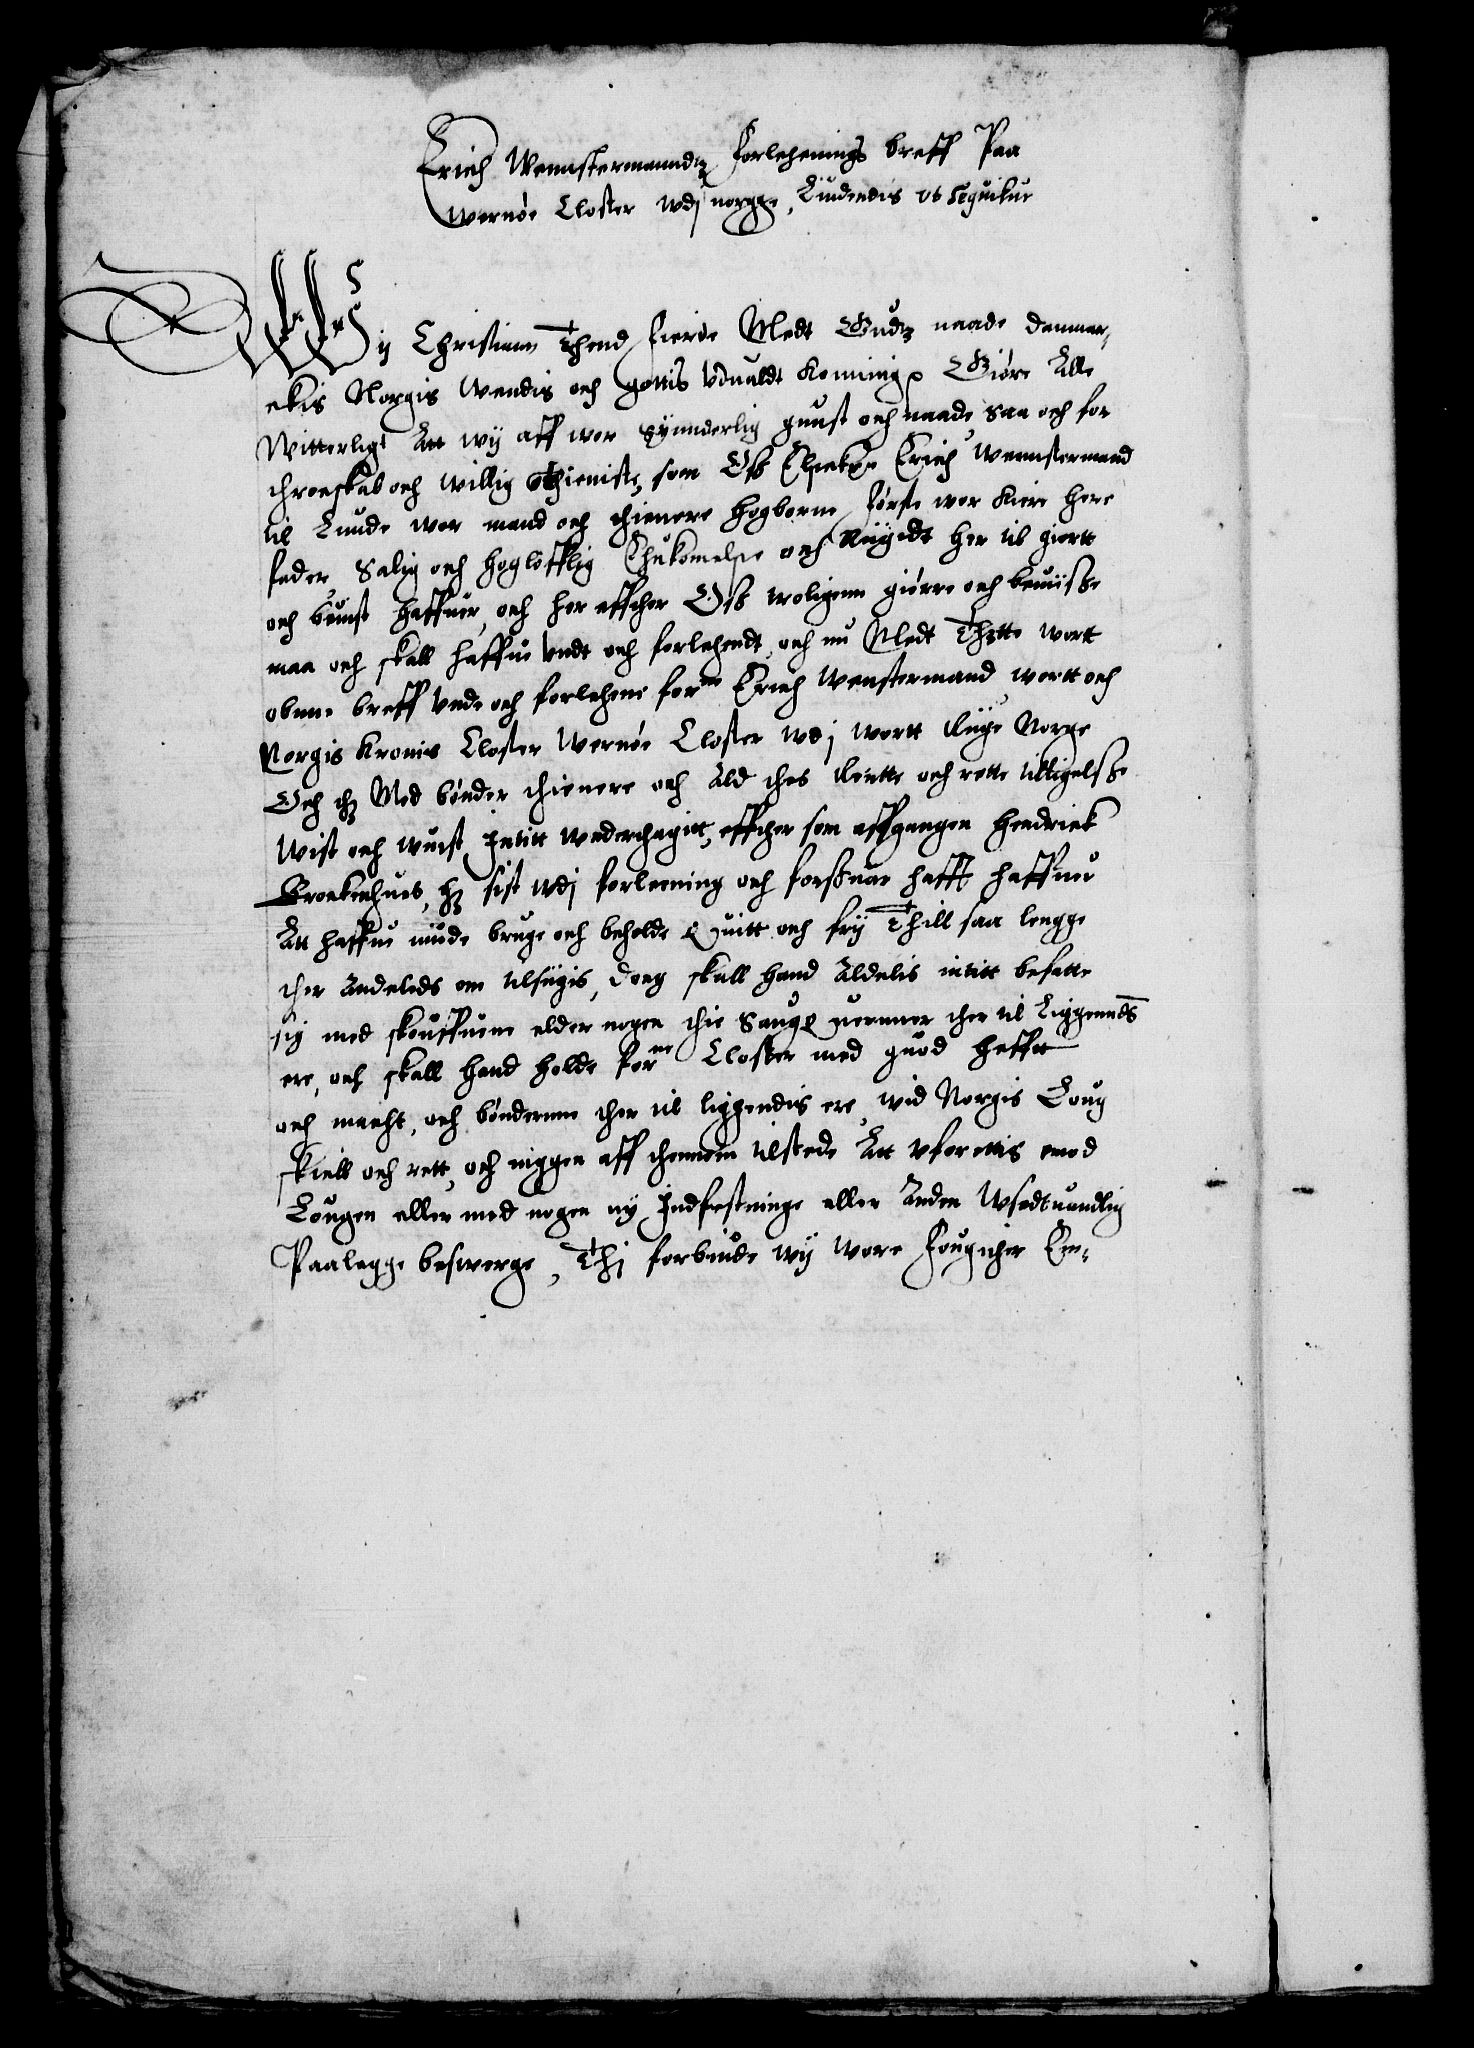 Erich Wennstermanndtz Forlehenings breff Paa
Wernøe Closter wdj norgge, Liudendis vt sequitur
Wy Christiann Thend fierde Medt Gudtz naade danmar,
ckis Norgis Wendis och gottis vdualdt Konning Giøre Alle
Witterligt Att wy aff wor Synnderlig gunst och naade, saa och for
throeskab och willig thieniste, som Oss Elskelige Erich Wennstermand
til Lunde wor mand och thienere Hogborne første wor kiere Here
fader Salig och hogloftlig Ihukomelse och Riigedt her til giortt
och beuist haffuer, och her effther Oss troligenn giørre och beuisse
maa och skall haffue vndt och forlehendt, och nu Medt Thette wortt
obnne breff vnde och forlehene forne Erich Wenstermand wortt och
Norgis kronis Closter Wernøe Closter wdj wortt Riige Norge
Och thz Med bønder thienere och Ald thes Rentte och rette tilligelsse
Wist och wuist Intitt wnderthagitt, effther som affgangen Hendrick
Brockenhuus, thz sist wdj forlening och forsuar hafft haffuer
Att haffue niude bruge och beholde Quitt och frij Thill saa lengge
ther Andeleds om tilsiigis, dog skall hand Aldelis intitt befatte
sig med skouffuene elder nogen thie Saugquernner ther til Liggenndes
ere, och skall hand holde forne Closter med guod hefft
och macht, och bønderne ther til liggendis ere, wid Norgis Loug
skiell och rett, och inggen aff thennem tilstede Att vforettis emod
Lougen eller med nogen ny Indfestninge eller Anden Wsedtuandlig
Paalegge beswerge, Thj forbiude wij wore Fougither Em,